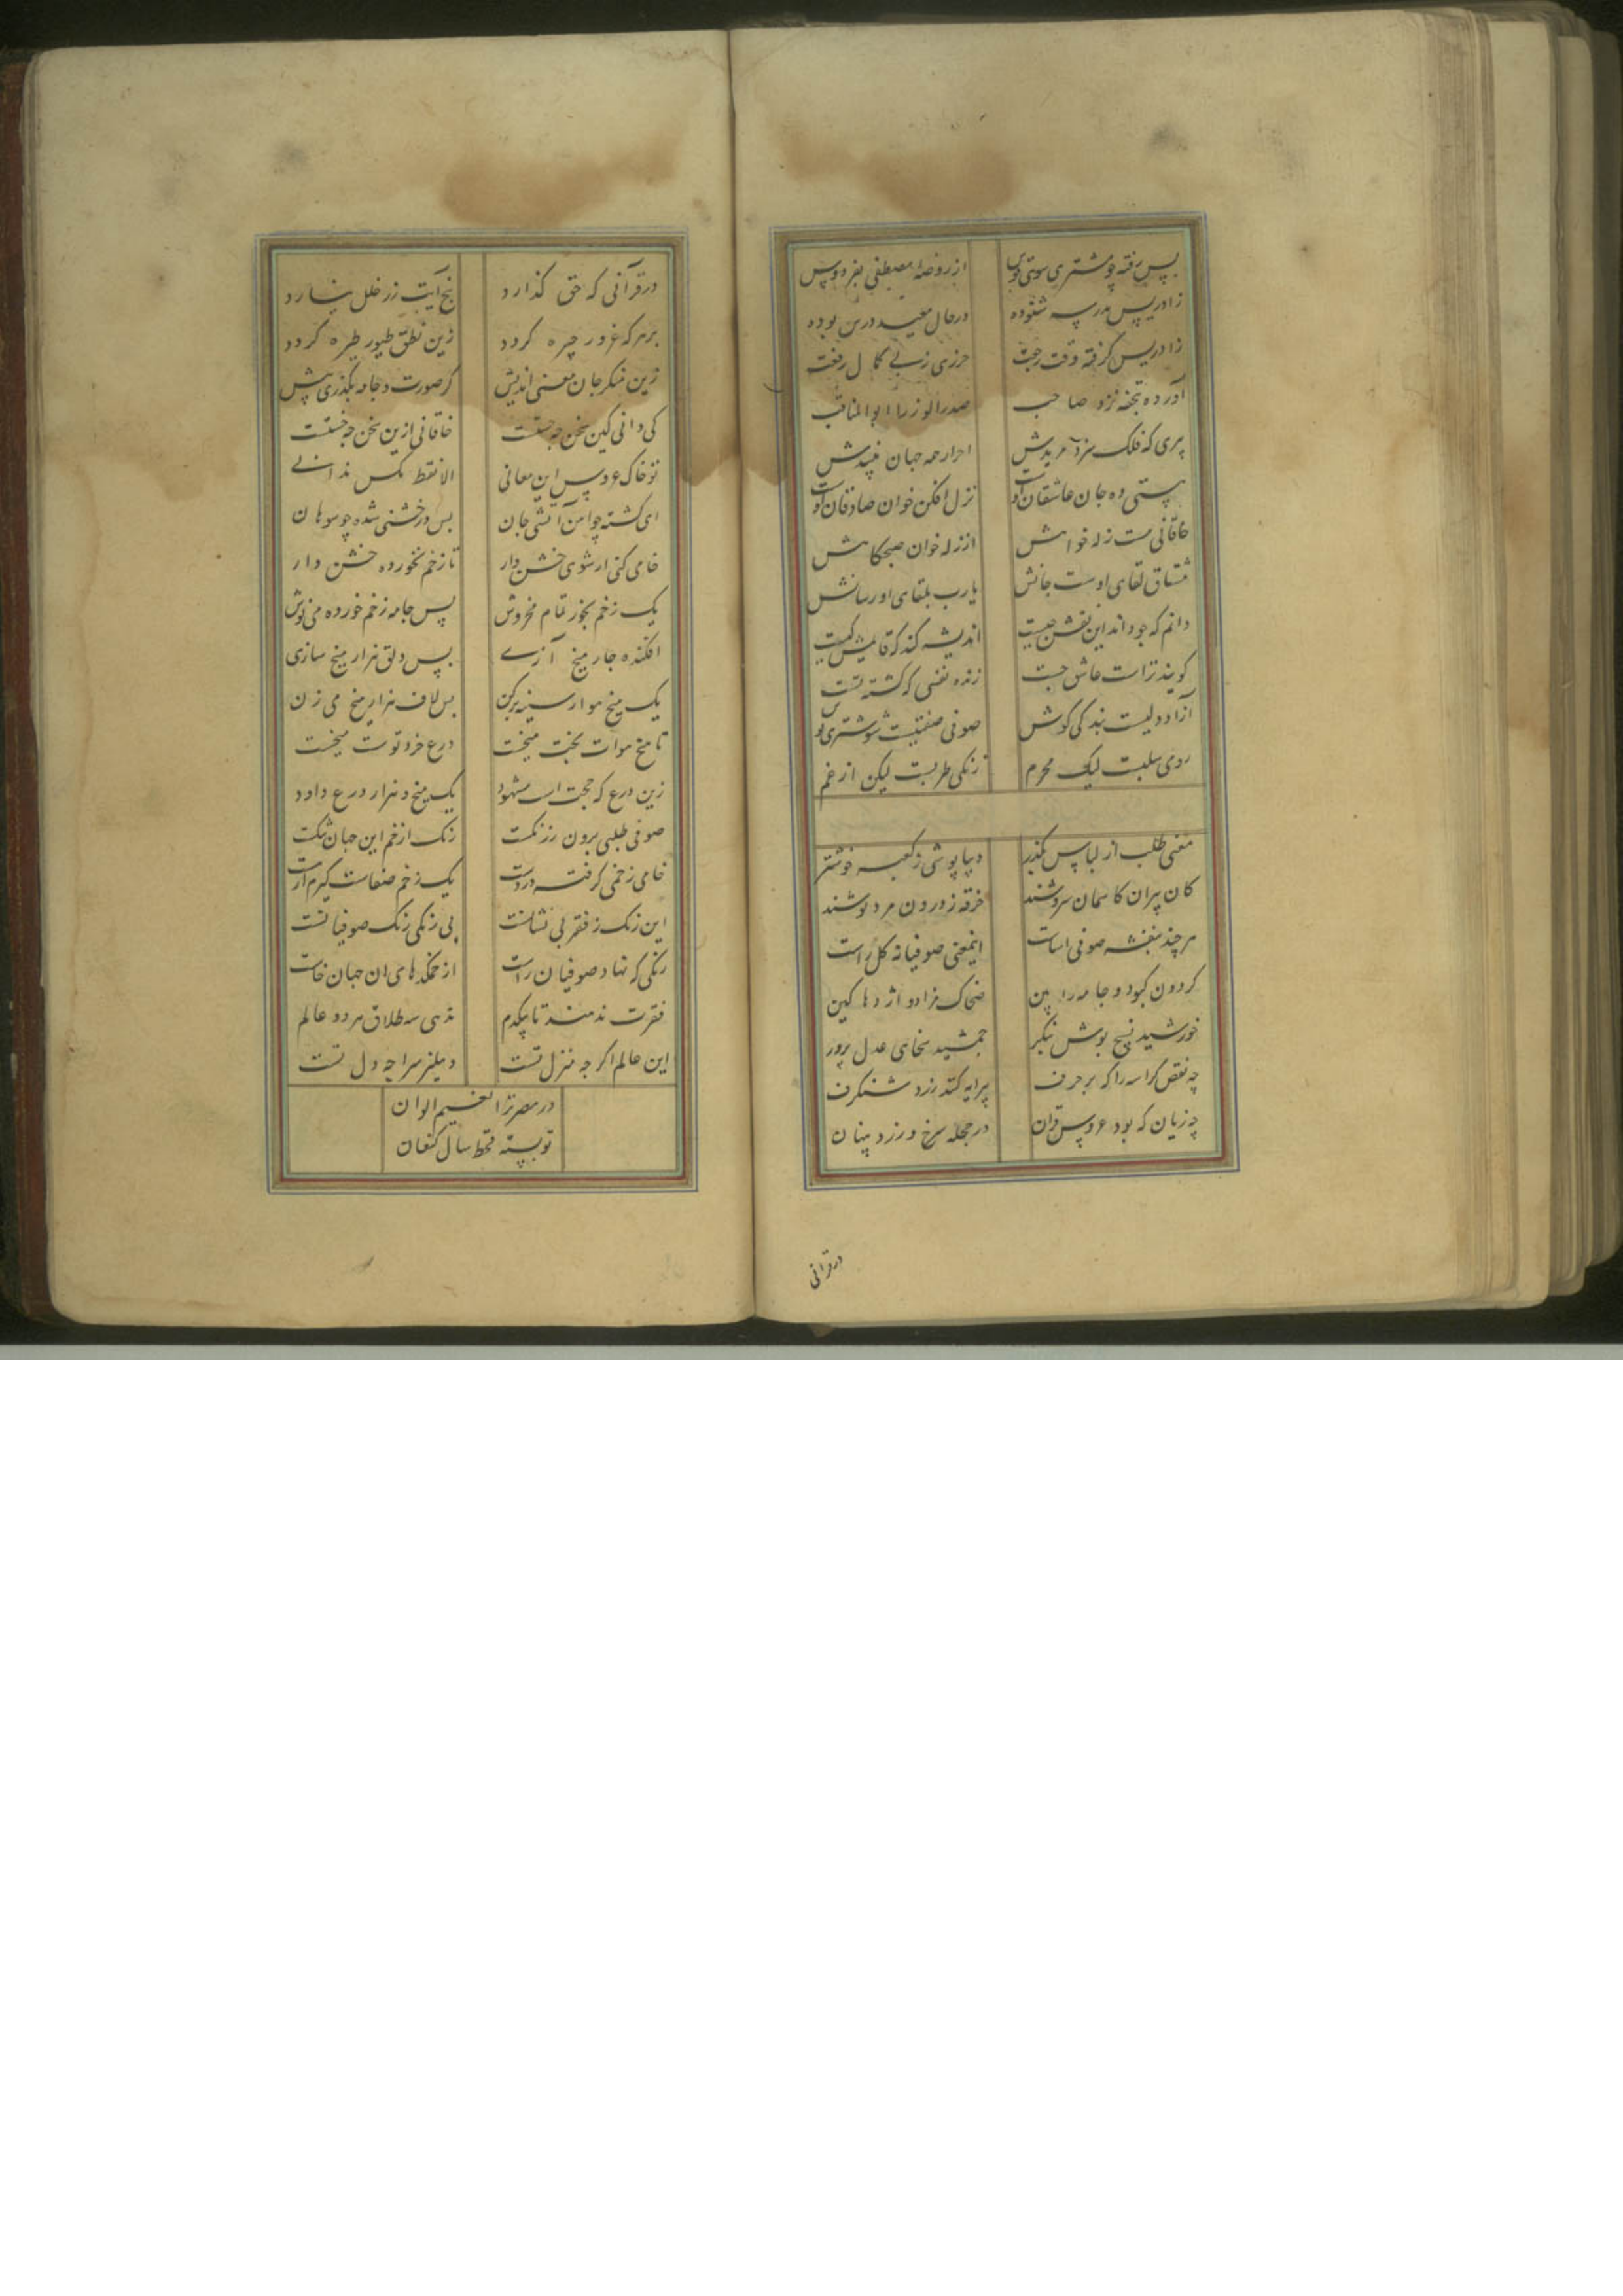 پس رفته چو مشتری سوی قوس از روضهٔ مصطفی بفردوس
زادریس مدرسه شنوده در حال معید درس بوده
زادریس گرفته وقت رجعت حرزی ز پی کمال رفعت
آورده بتحفه نزد صاحب صدر الوزرا ابو المناقب
پیری که فلک سزد مریدش احرار همه جهان
هستی ده جان عاشقان اوست نزل افکن خوان صادقان اوست
خاقانی مست زله خوانش از زله خوان صبحگاهش
مشتاق لقای اوست جانش یا رب بلقای او رسانش
دانم که چو داند این نقش چیست اندیشه کند که قایلش کیست
گویند تراست عاشق چست زنده نفسی که کشته تست
آزاد دلیست بندگی کوش صوفی صفتیست شوشتری پوش
رومی سلبست لیک محرم زنگی طربست لیکن از غم
معنی طلب از لباس بگذر دیبا پوشی ز کعبه خوشتر
کان پیران کاسمان سروشند خرقه ز درون مرد پوشند
هر چند بنفشه صوفی آساست اینمعنی صوفیانه گل راست
گردون کبود و جامه را بین ضحاک نژاد و اژدها کین
خورشید نسیج پوش بنگر جمشید سخای عدل پرور
چه نقص کراسه را که بر حرف پیرایه کنند زرد شنگرف
چه زیان که بود عروس قران در حجله سرخ و زرد پنهان
در قرآنی
در قرآنی که حق گذارد پنج آیت زر خلل نیارد
بر هر که غرور چیره گردد زین نطق طیور طیره گردد
زین منگر جان معنی اندیش گر صورت و جامه بگذری پیش
کی دانی کین سخن چه جستست خاقانی ازین سخن چه جستست
تو خاک عروس این معانی الا نقط مگس ندانی
ای گشته چو آهن آتشی جان بس درخشنی شده چو سوهان
خامی کنی ار شوی خشن دار تا زخم نخورده خشن دار
یک زخم بخور تمام مخروش پس جامه زخم خورده می پوش
افکنده چار میخ آزی پس دلق هزار میخ سازی
یک میخ هوا ز سینه بر کن پس لاف هزار میخ می زن
تا میخ هوات بخت میخت درع خرد تو سست میخست
زین درع که حجت است مشهود یک میخ و هزار درع داود
صوفی طلبی برون رز رنگست رنگ از خم این جهان تنگست
خامی ز خمی گرفته در دست یک زخم صفاست گیرم ار هست
این رنگ ز فقر بی نشانست بی رنگی رنگ صوفیانست
رنگی که نهاد صوفیان راست از خمکدهای ان جهان خاست
فقرت ندهند تا بیکدم ندهی سه طلاق هر دو عالم
این عالم اگر چه منزل تست دهلیز سراچه دل تست
در مصر ترا نعیم الوان
تو بسته قحط سال کنعان